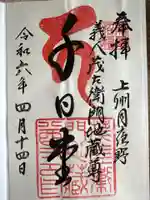 奉拝
上州月夜野
義人茂左衛門地蔵尊
千日堂
令和六年四月十四日